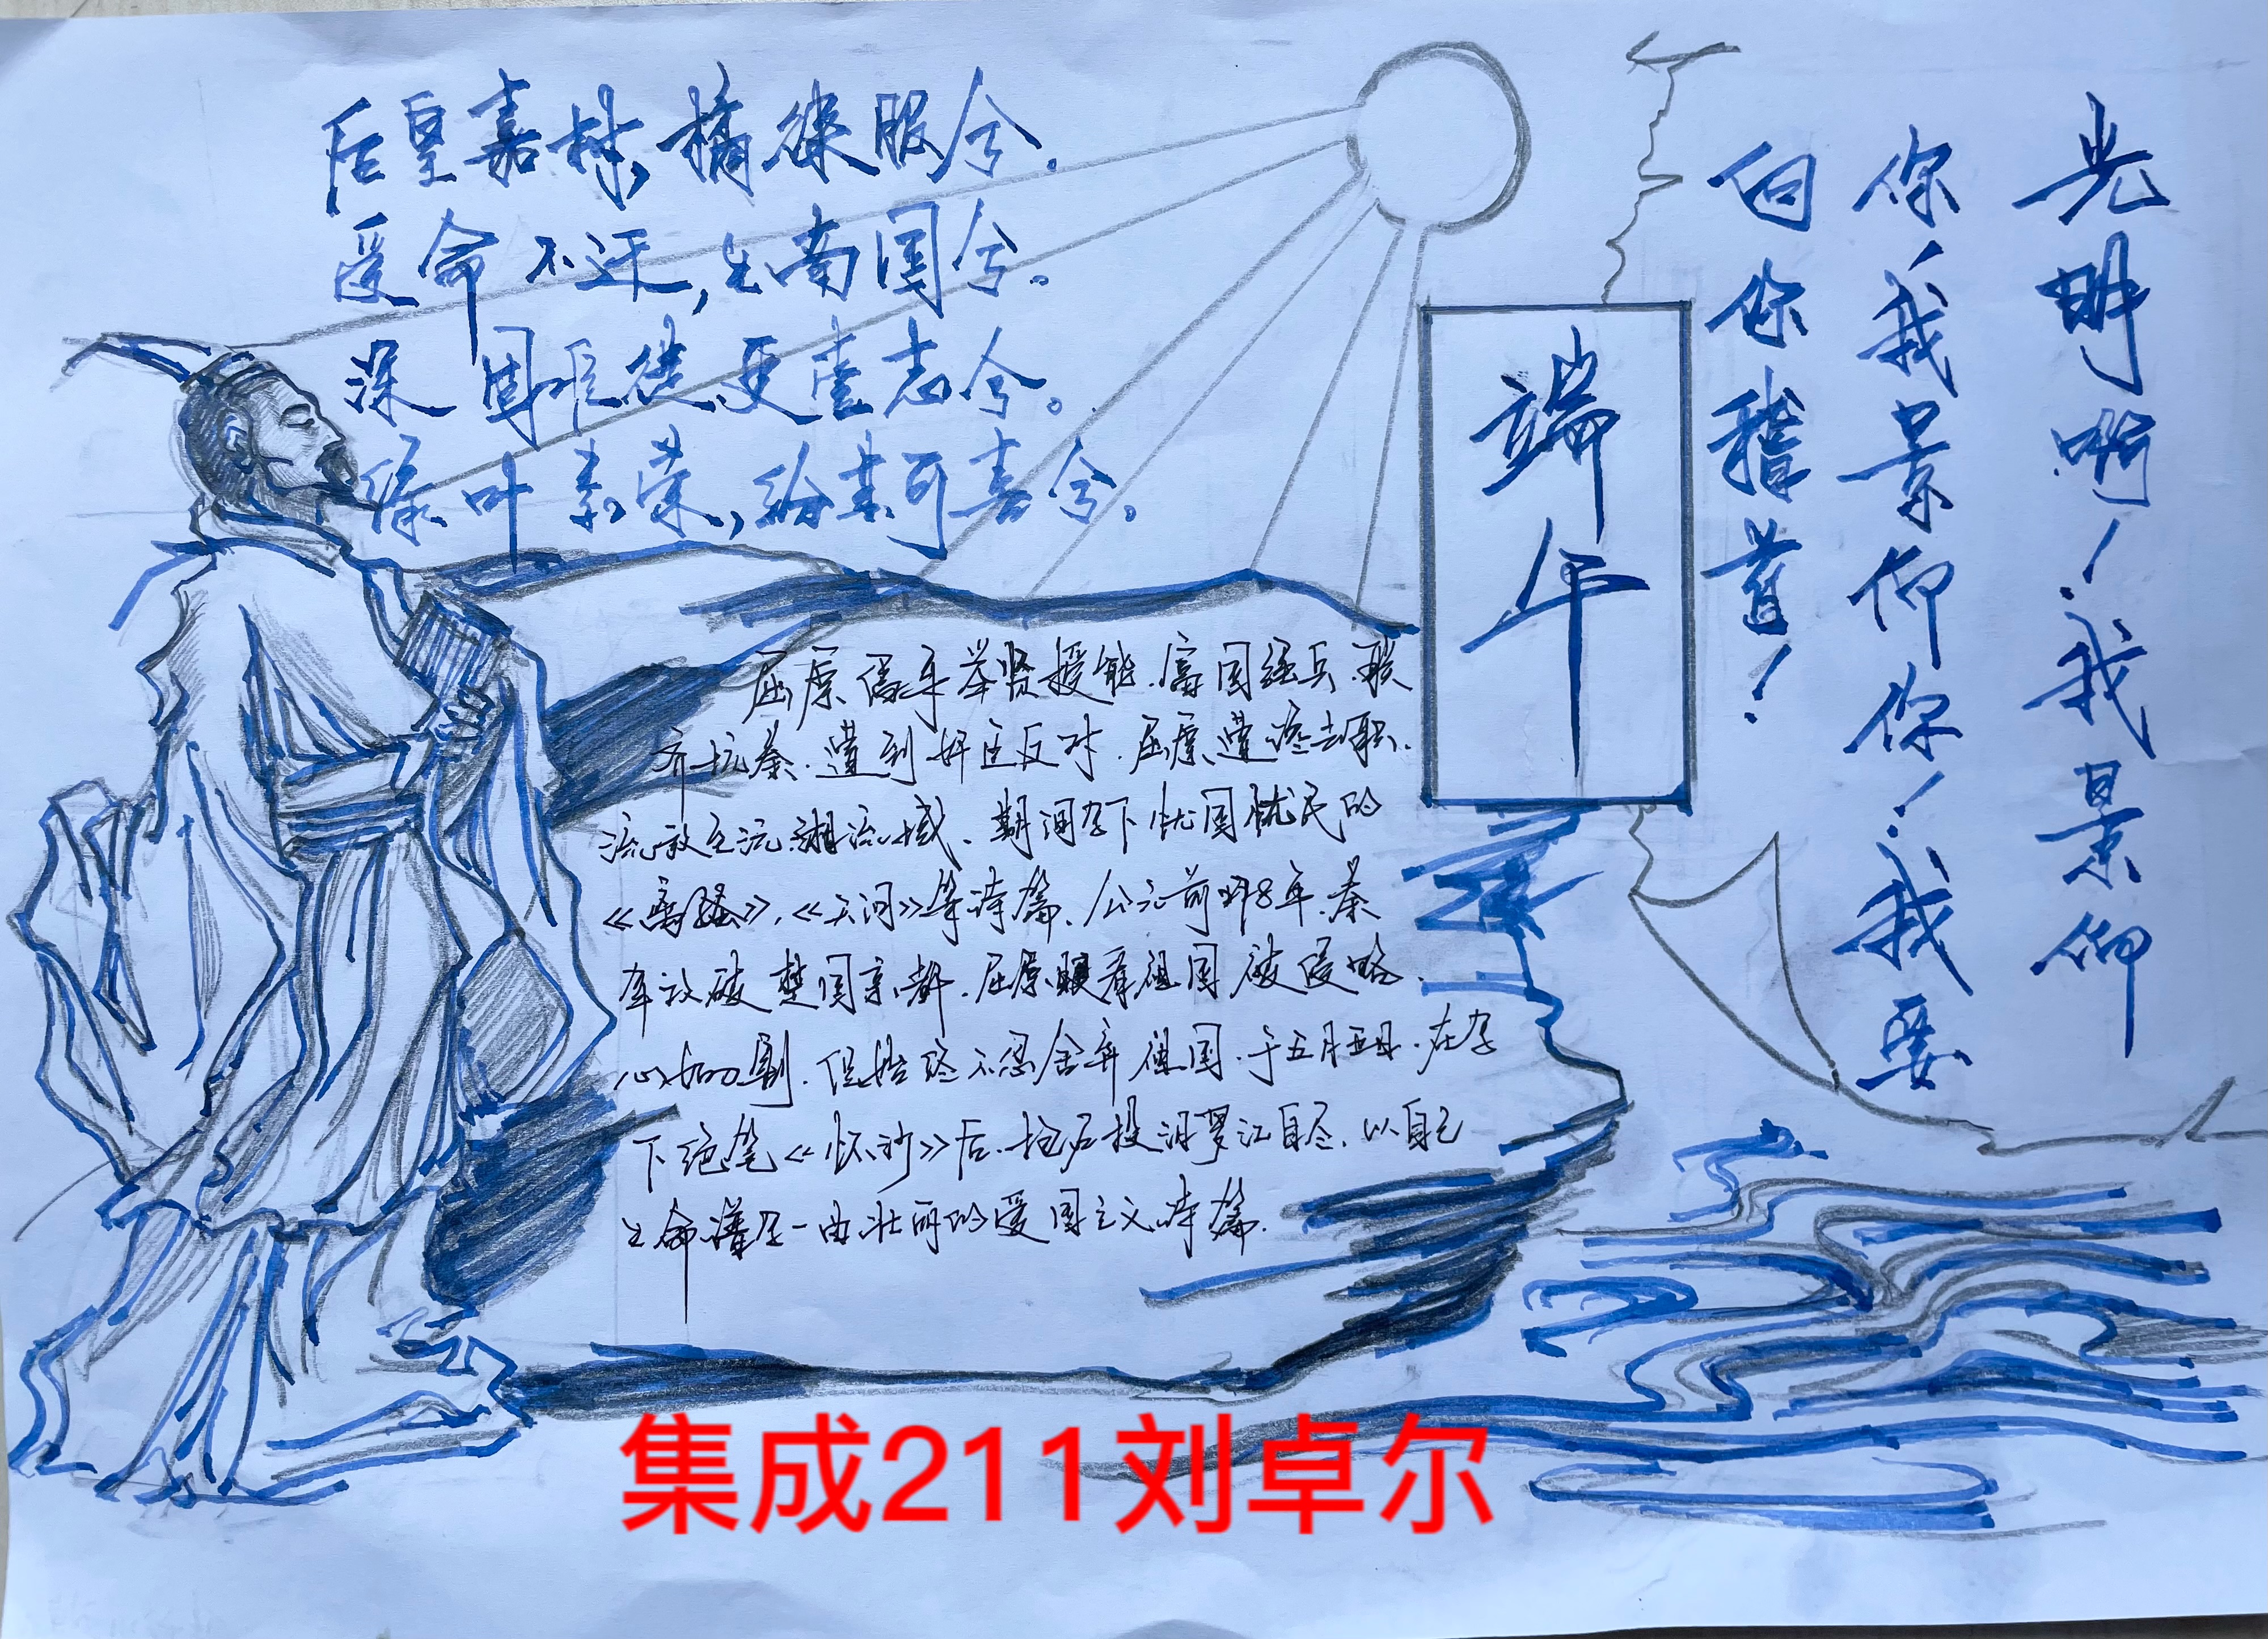 后皇嘉树,橘徕服兮。
受命不迁,生南国兮。
深固难徙,更壹志兮。
绿叶素荣,纷其可喜兮。
端午
光明啊!我景仰
你!我景仰你!我要
向你稽首!
屈原倡导举贤授能.富国强兵.联
齐抗秦.遭到奸臣反对.屈原遭谗去职.
流放至沅.湘流域、期间写下忧国忧民的
《离骚》,《天问》等诗篇、公元前278年.秦
军攻破楚国京都.屈原眼看祖国被侵略.
心如刀割.但始终不忍舍弃祖国.于五月五日.在写
下绝笔《怀沙》后.抱石投汨罗江自尽.以自己
生命谱写一曲壮丽的爱国主义诗篇.
集成211刘卓尔